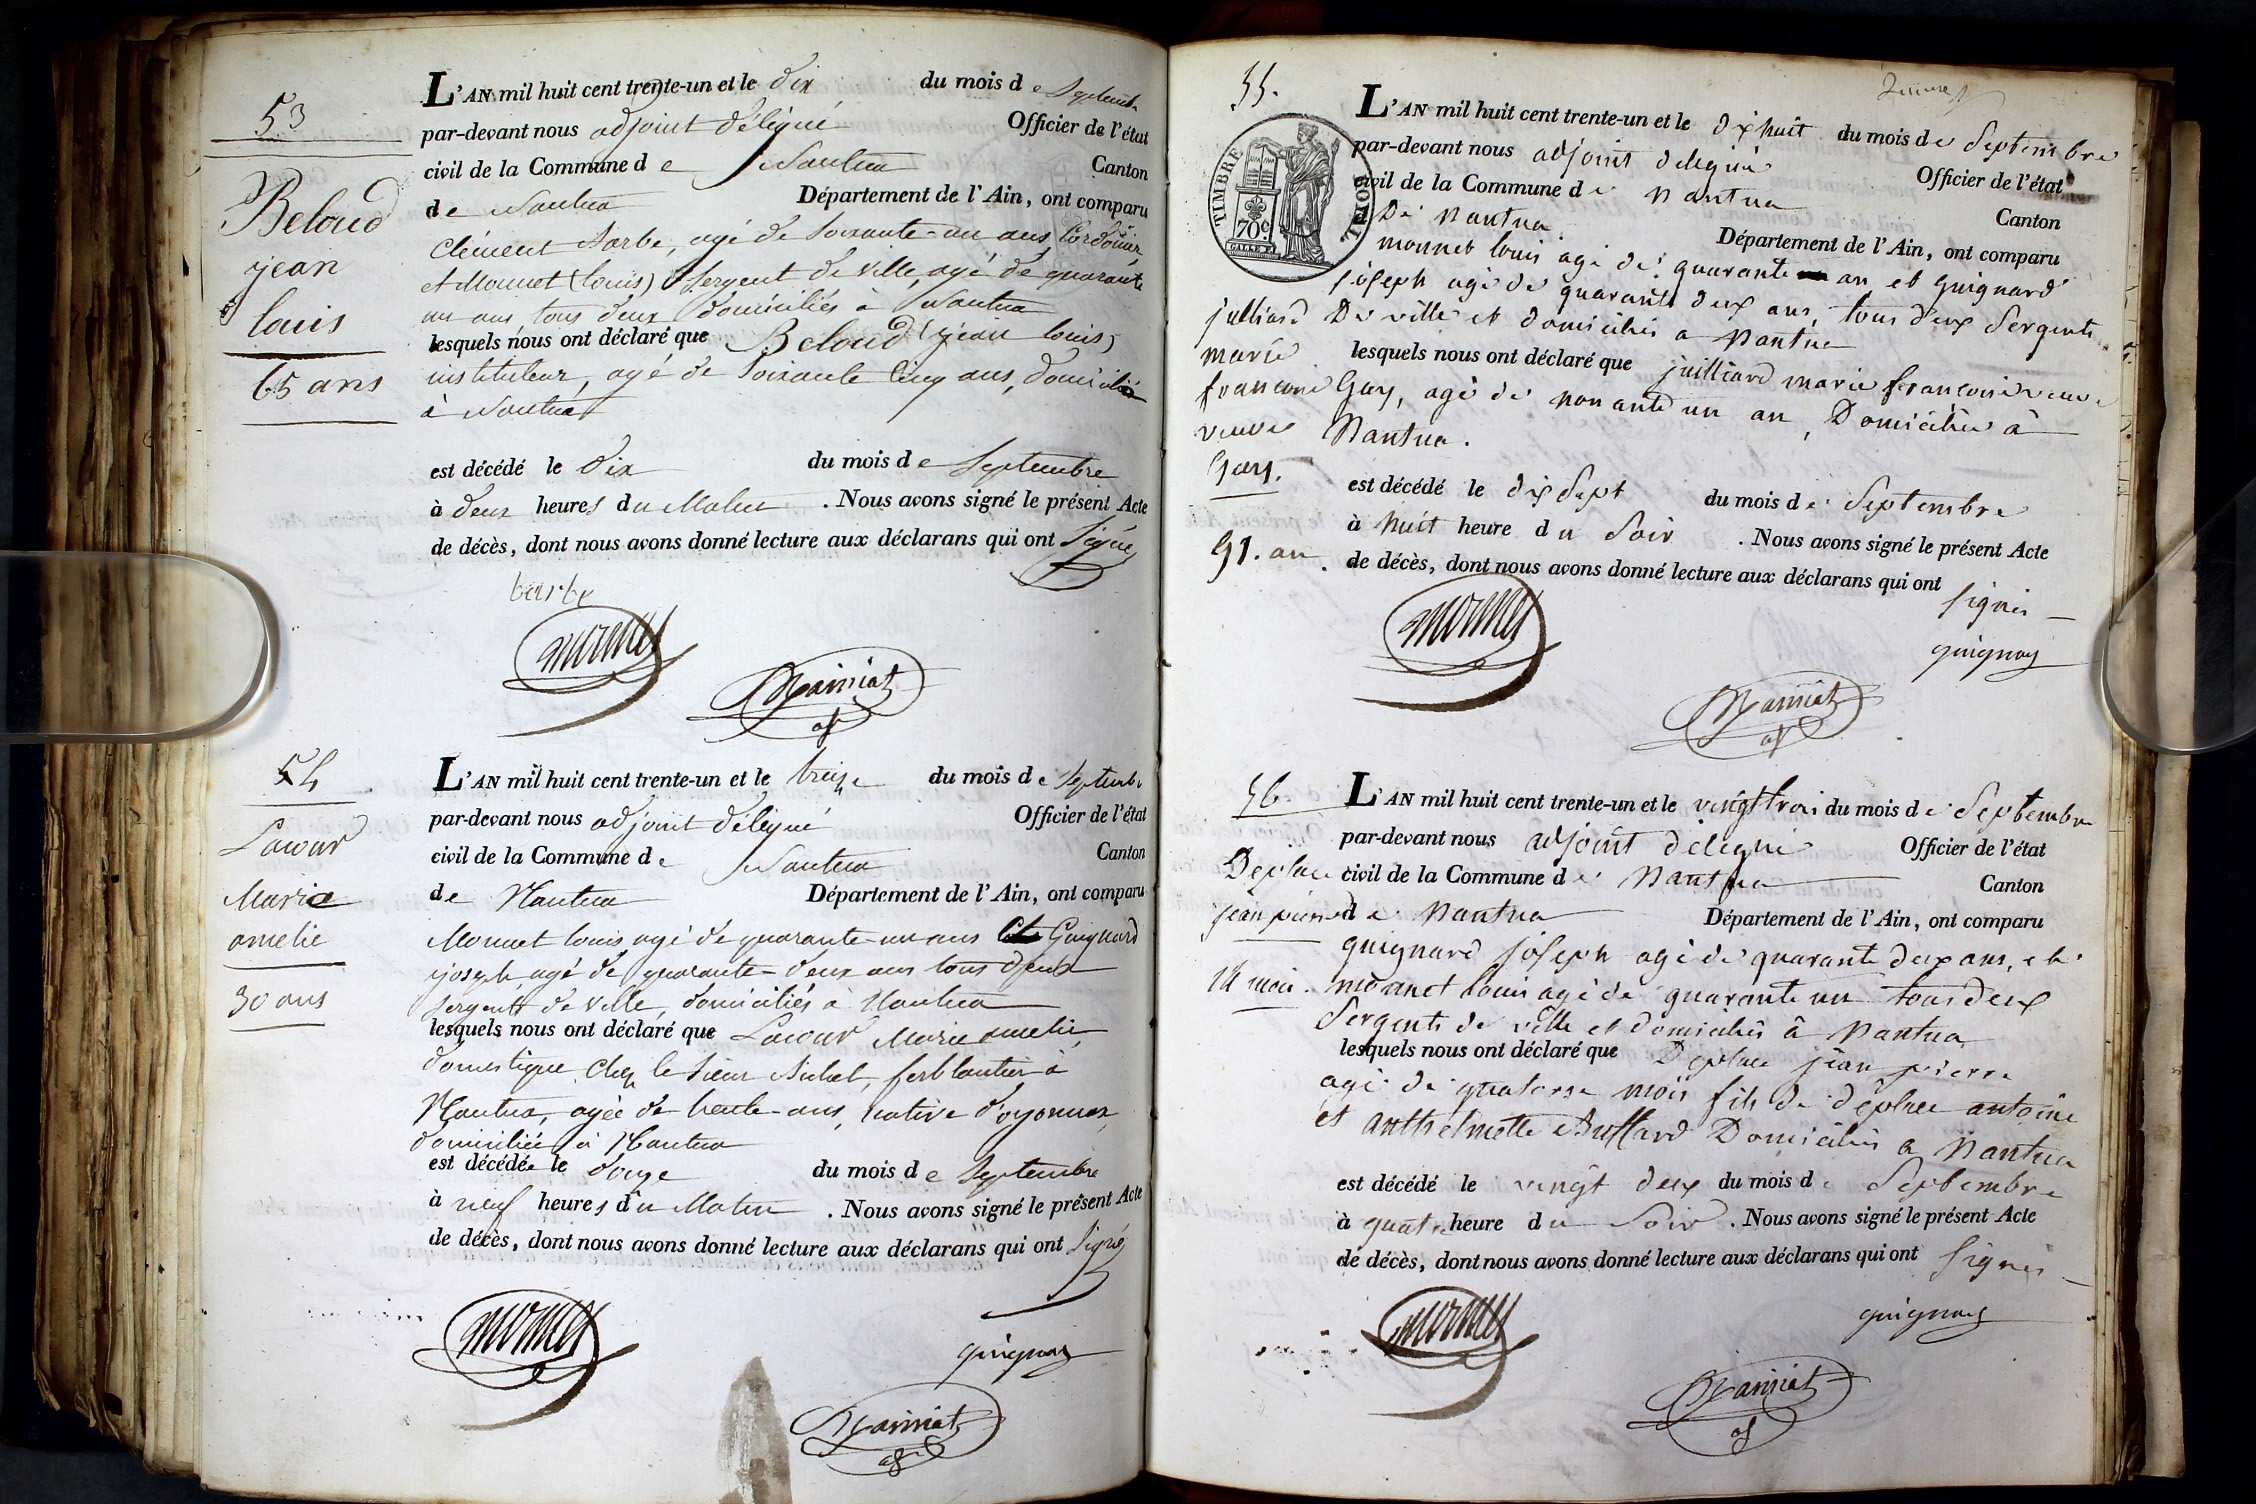 53
Beloud
jean
louis
65 ans
L'AN mil huit cent trente-un et le dix du mois de Septembre
par-devant nous adjoint délégué Officier de l'état
civil de la Commune de Nantua Canton
de Nantua Département de l'Ain, ont comparu
Clément Barbe, agé de soixante-un ans Cordonier
et Monnet (louis) Sergent de Ville, agé de quarante
un ans tous deux domiciliés à Nantua
lesquels nous ont déclaré que Beloud (jean louis)
instituteur, agé de soixante cinq ans, domicilié
à Nantua
est décédé le dix du mois de Septembre
à deux heures du Matin . Nous avons signé le présent Acte
de décès, dont nous avons donné lecture aux déclarans qui ont Signés
barbe
monnet
54
Lacour
Marie
amelie
30 ans
L'AN mil huit cent trente-un et le treize du mois de Septembre
par-devant nous adjoint délégué Officier de l'état
civil de la Commune de Nantua Canton
de Nantua Département de l'Ain, ont comparu
Monnet louis agé de quarante-un ans Guignard
joseph agé de quarante-deux ans tous deux
sergents de Ville, domiciliés à Nantua
lesquels nous ont déclaré que Lacour Marie amelie,
domestique chez le Sieur ferblantier à
Nantua, agée de trente-ans, native d'oyonnax,
domiciliée à Nantua
est décédée le douze du mois de Septembre
à neuf heures du Matin . Nous avons signé le présent Acte
de décès, dont nous avons donné lecture aux déclarans qui ont Signé
monnet
guignard
55.
TIMBRE ROYAL
70 c
julliard
marie
francoise
veuve
Gay.
91. an
L'AN mil huit cent trente-un et le dix huit du mois de Septembre
par-devant nous adjoint delegué Officier de l'état
civil de la Commune de Nantua Canton
De Nantua Département de l'Ain, ont comparu
monnet louis agé de quarante an et guignard
joseph agé de quarante deux ans, tous deux Sergents
De ville et domiciliés a Nantua
lesquels nous ont déclaré que juilliard marie francoise veuve
Gay, agé de nonante un an, Domiciliée à
Nantua.
est décédé le dix Sept du mois de Septembre
à huit heure du Soir . Nous avons signé le présent Acte
de décès, dont nous avons donné lecture aux déclarans qui ont
Signés
monnet
guignard
56
Deplace
jean pierre
14 mois.
L'AN mil huit cent trente-un et le vingt trois du mois de Septembre
par-devant nous adjoint delegué Officier de l'état
civil de la Commune de Nantua Canton
de Nantua Département de l'Ain, ont comparu
guignard joseph agé de quarante deux ans, et
monnet louis agé de quarante un tous deux
Sergents de ville et domiciliés à Nantua
lesquels nous ont déclaré que Deplace jean pierre
agé de quatorse mois fils de déplace antoine
et anthelmette Domiciliés a Nantua
est décédé le vingt deux du mois de Septembre
à quatre heure du Soir . Nous avons signé le présent Acte
de décès, dont nous avons donné lecture aux déclarans qui ont Signés
monnet
guignard